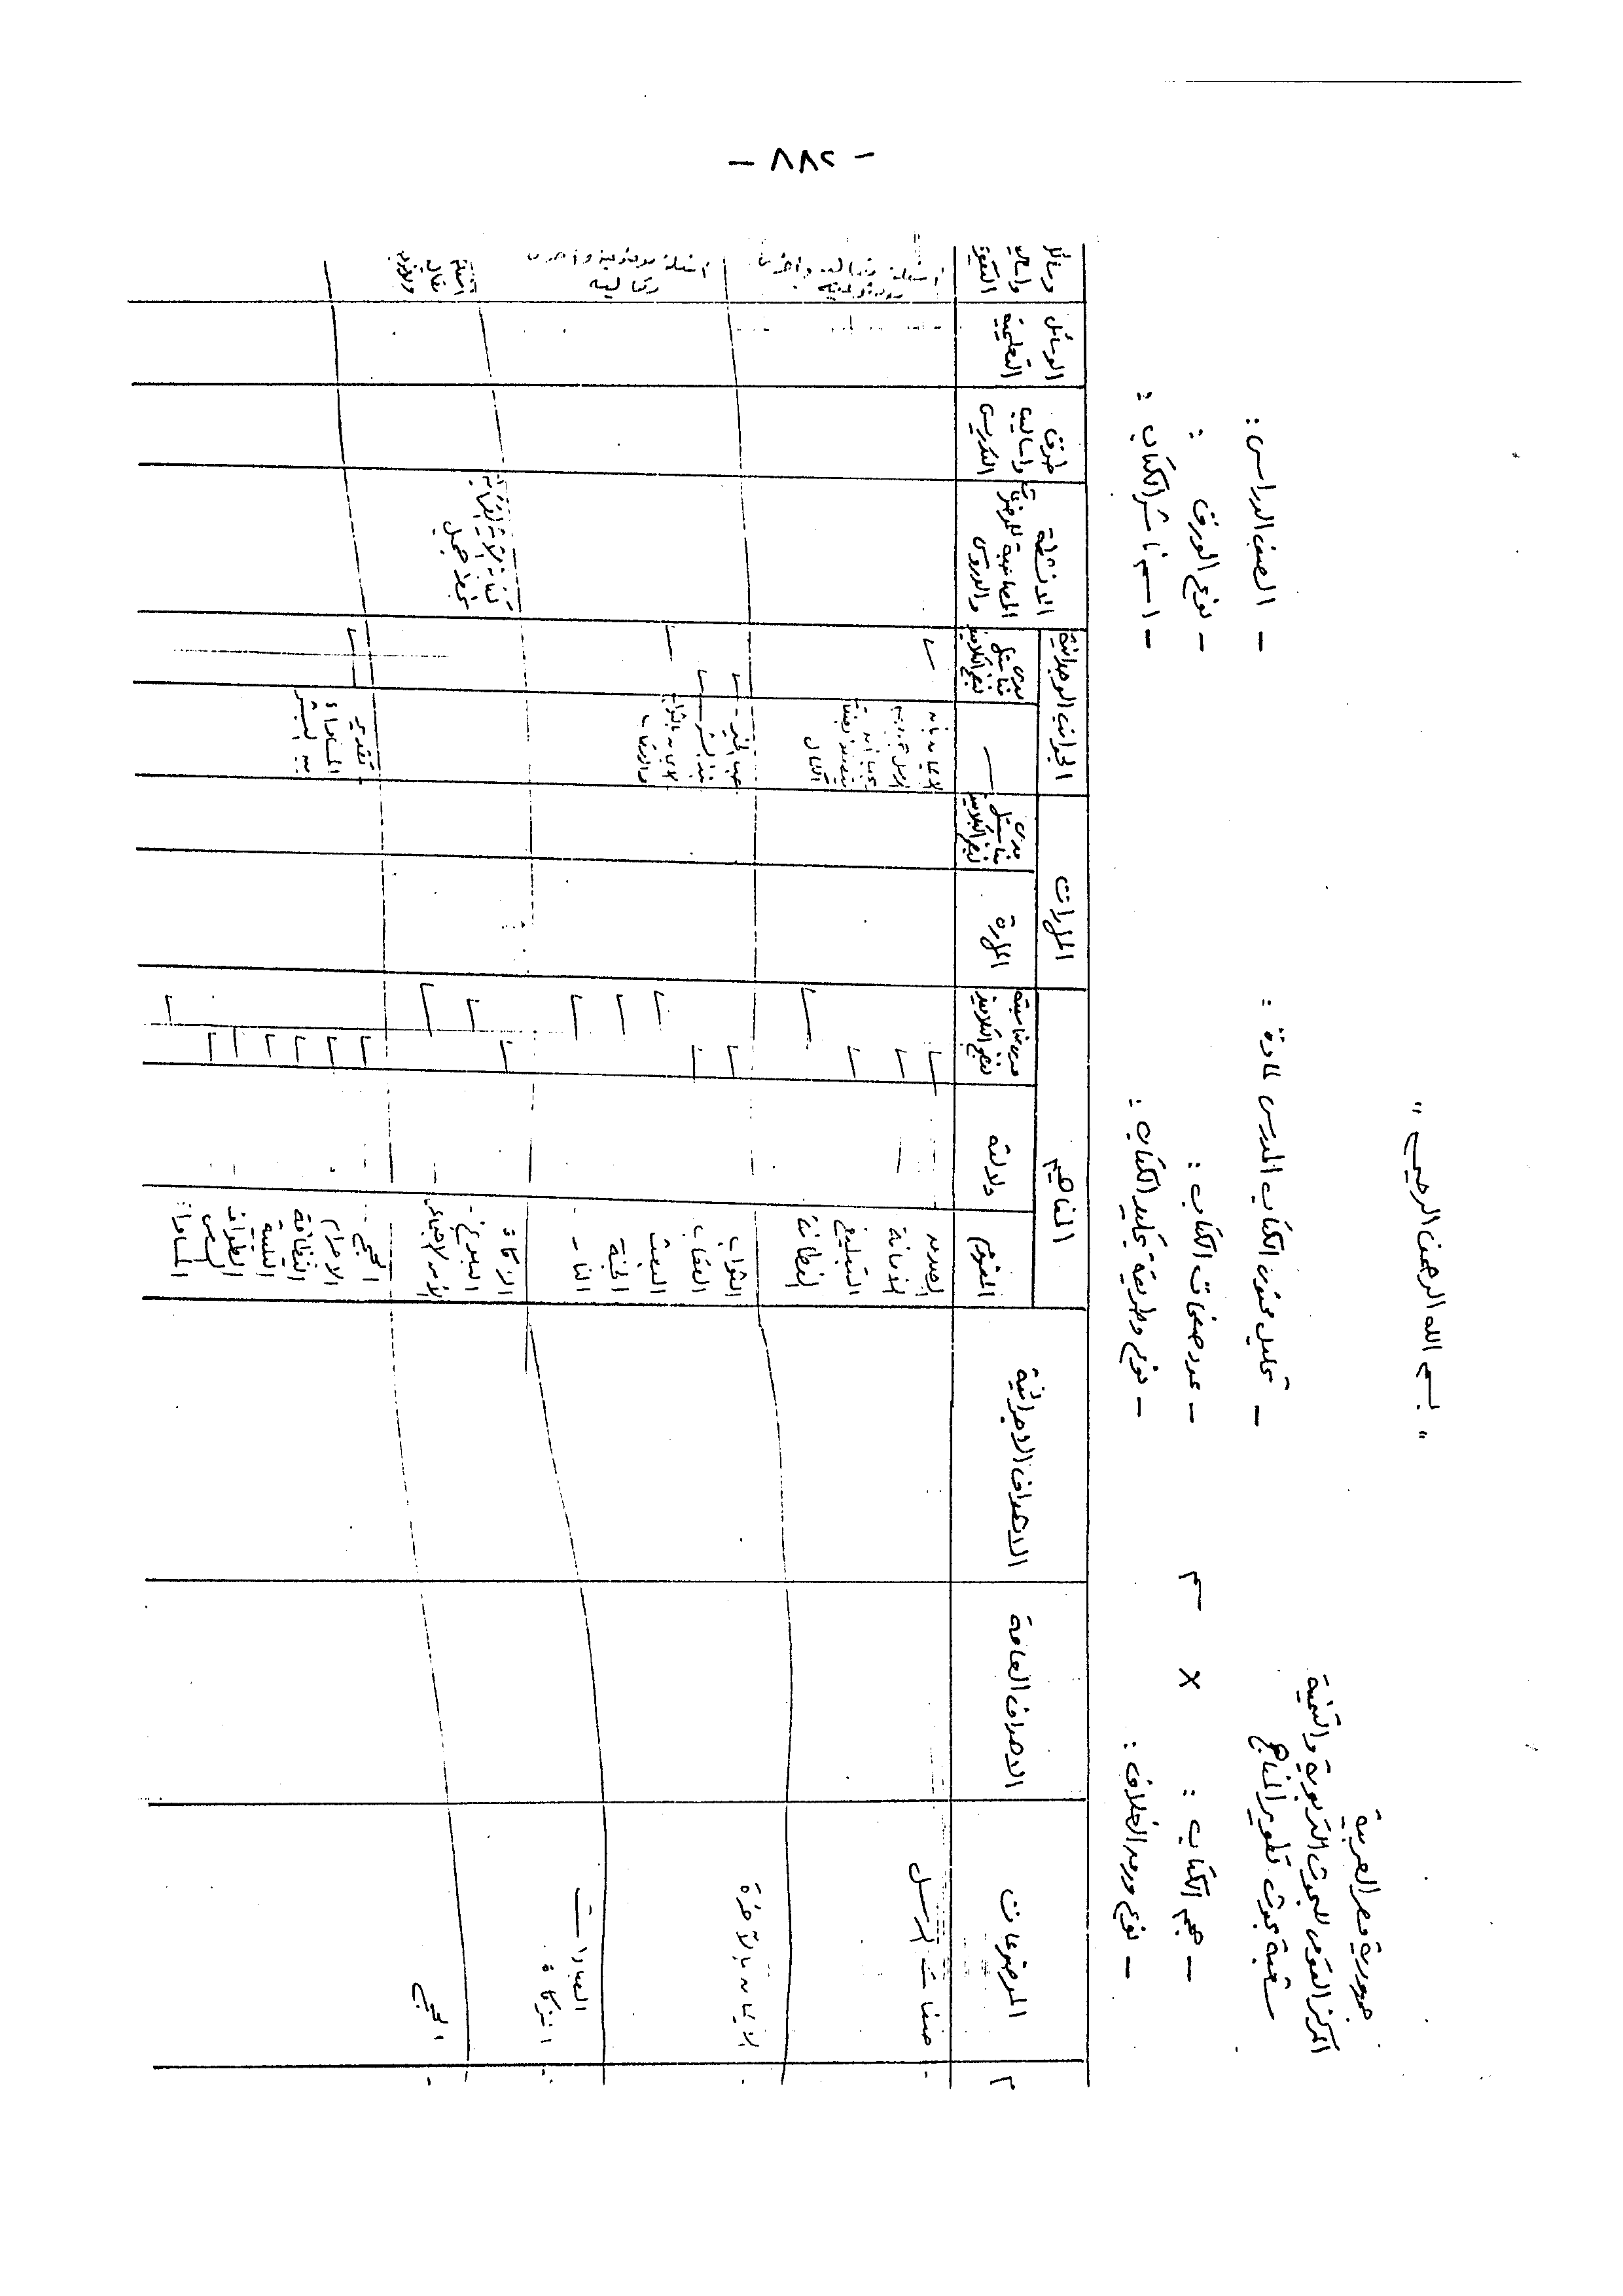 - ٢٨٨ -
" بسم الله الرحمن الرحيم "
جمهورية مصر العربية
المركز القومى للبحوث التربوية والتنمية
شعبة بحوث تطوير المناهج
- تحليل محتوى الكتاب المدرسى لمادة :
- الصف الدراسى :
- حجم الكتاب : × سم
- عدد صفحات الكتاب :
- نوع الورق :
- نوع ورق الغلاف :
- نوع وطريقة تجليد الكتاب :
- اسم ناشر الكتاب :
م
الموضوعات
الاهداف العامة
الاهداف الاجرائية
المفاهيم
المفهوم
دلالته
مدى مناسبته لنضج التلاميذ
المهارات
المهارة
مدى مناسبتها لنضج التلاميذ
الجوانب الوجدانية
مدى مناسبتها لنضج التلاميذ
الانشطة المصاحبة للموضوعات والدروس
طرق واساليب التدريس
الوسائل التعليمية
وسائل واساليب التقويم
صفات الرسل
الصدق
الامانة
التبليغ
الفطانة
الايمان بأن
الكمال
الايمان بالآخرة
الثواب
العقاب
البعث
الجنة
النار
حب الخير
نبذ الشر
الايمان بالثواب
والعقاب
اسئلة موضوعية واخرى
مقالية
العبادات
الزكاة
الزكاة
كتابة الآية القرآنية
بخط جميل
اسئلة
مقالية
الحج
الحج
الاحرام
النظافة
التلبية
الطواف
السعى
المساواة
تقدير
المساواة
بين البشر